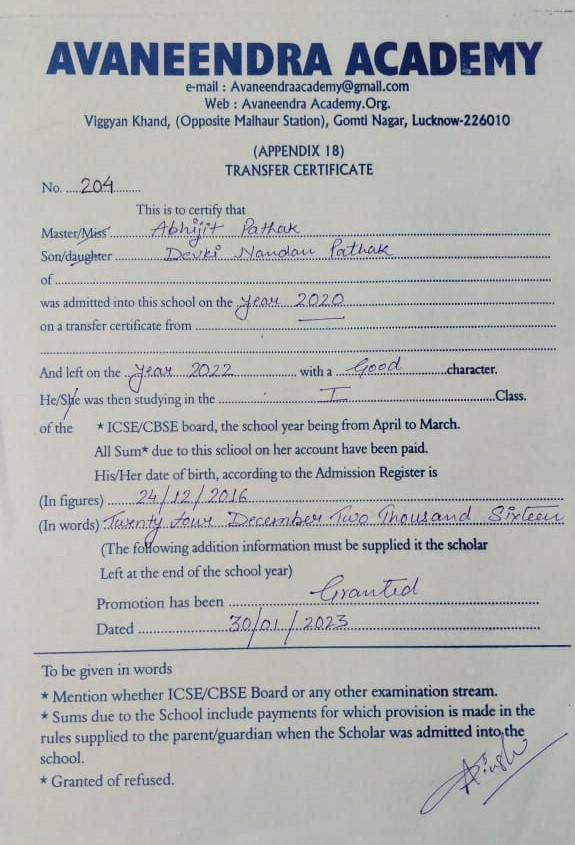 AVANEENDRA ACADEMY
e-mail : Avaneendraacademy@gmail.com
Web : Avaneendra Academy.Org.
Viggyan Khand, (Opposite Malhaur Station), Gomti Nagar, Lucknow-226010
(APPENDIX 18)
TRANSFER CERTIFICATE
No. ....204........
This is to certify that
Master/Miss ........ Abhijit Pathak ........
Son/daughter ........ Devki Nandan Pathak ........
of ........
was admitted into this school on the year 2020
on a transfer certificate from ........
And left on the year 2022 ........ with a .. Good ........character.
He/She was then studying in the ........ I ........Class.
of the * ICSE/CBSE board, the school year being from April to March.
All Sum* due to this scliool on her account have been paid.
His/Her date of birth, according to the Admission Register is
(In figures) ...... 24/12/2016 ........
(In words) Twenty four December Two Thousand Sixteen
(The following addition information must be supplied it the scholar
Left at the end of the school year)
Promotion has been ........ Granted
Dated ........ 30/01/2023 ........
To be given in words
* Mention whether ICSE/CBSE Board or any other examination stream.
* Sums due to the School include payments for which provision is made in the
rules supplied to the parent/guardian when the Scholar was admitted into the
school.
* Granted of refused.